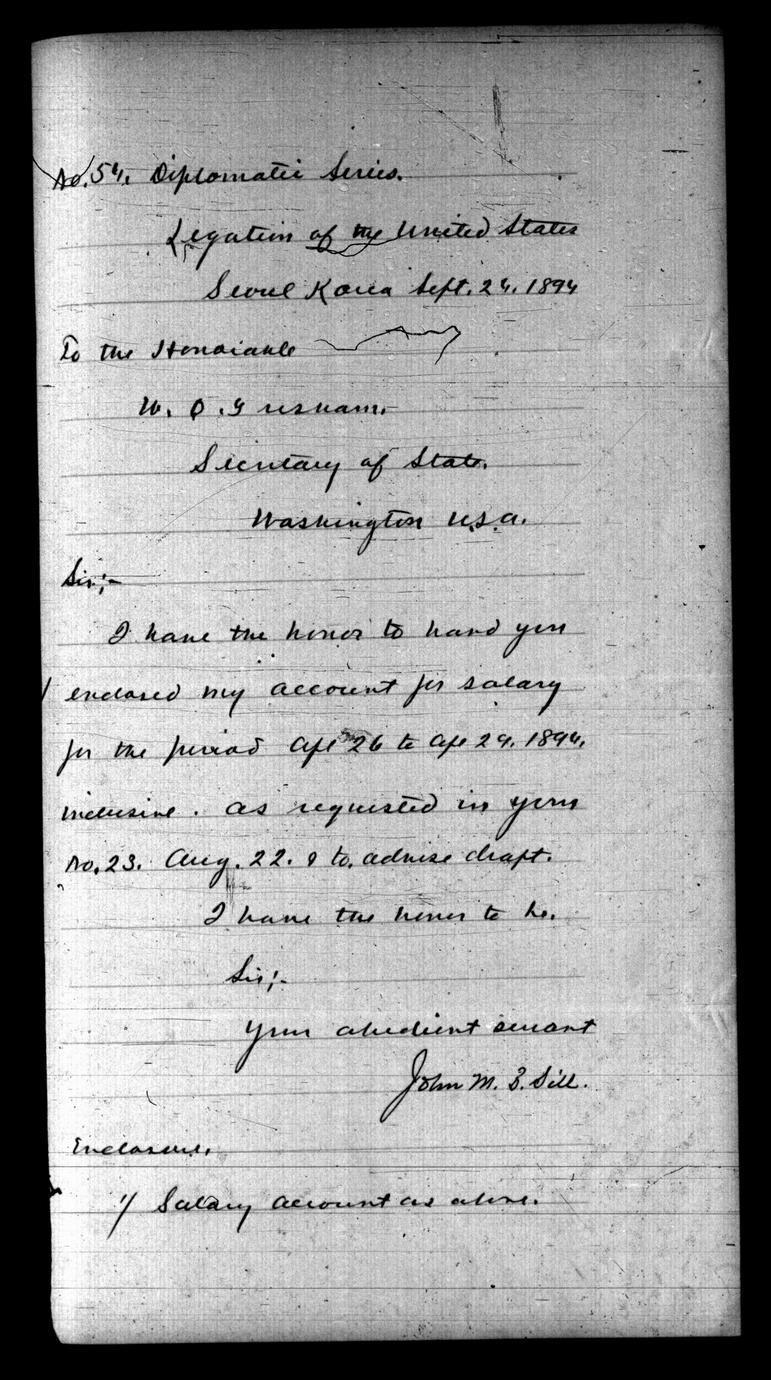 No. 54. Diplomatic Series.
Legation of the United States
Seoul Korea Sept. 24. 1894
To the Honorable
W. Q. Gresham.
Secretary of State.
Washington U.S.A.
Sir;-
I have the honor to hand you
1 enclosed my account for salary
for the period Apl 26 to Apl 29. 1894.
inclusive. as requested in your
No. 23. Aug. 22. & to advise draft.
I have the honor to be.
Sir;-
Your obedient servant
John M. B. Sill.
Enclosure.
1/ Salary account as above.